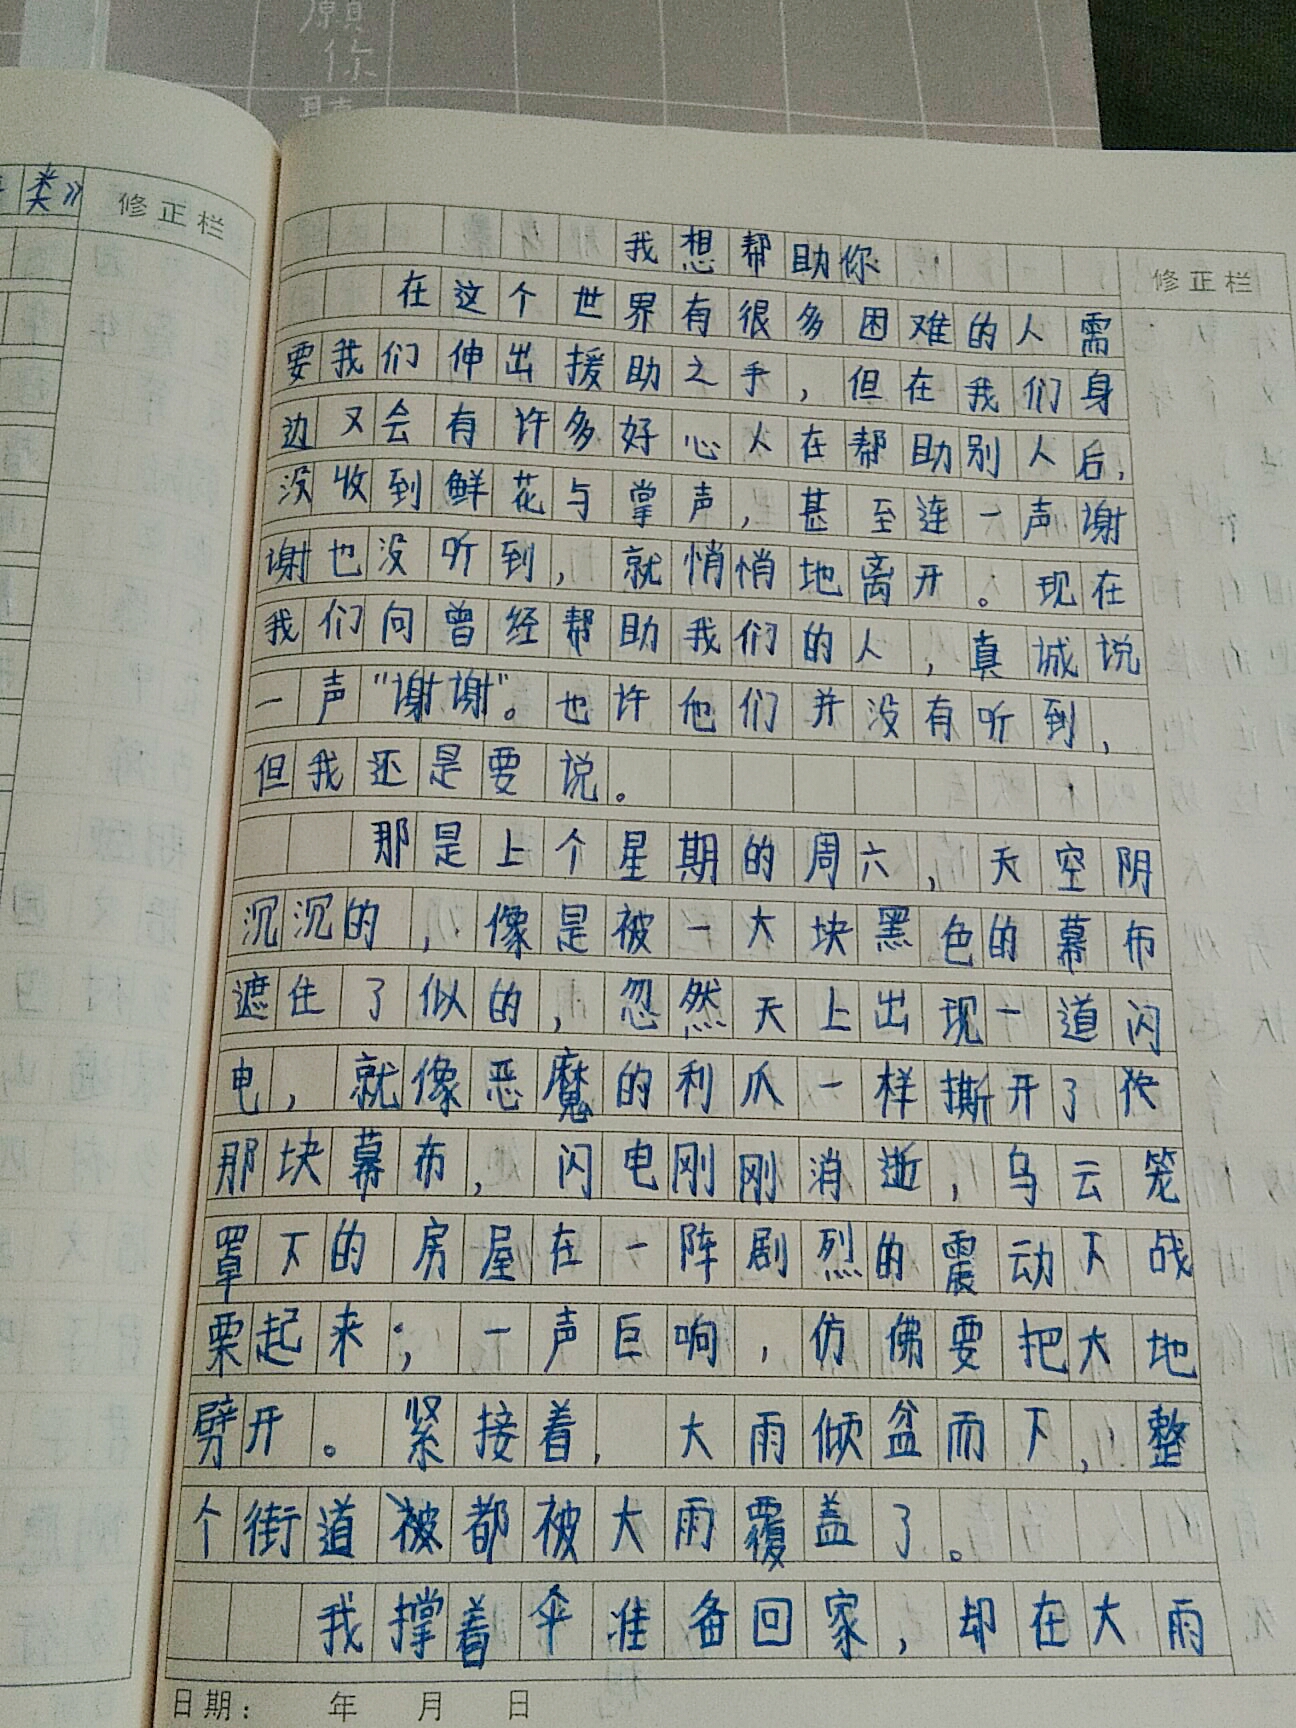 愿你
类》
修正栏
我想帮助你
修正栏
在这个世界有很多困难的人需
要我们伸出援助之手，但在我们身
边又会有许多好心人在帮助别人后，
没收到鲜花与掌声，甚至连一声谢
谢也没听到，就悄悄地离开。现在
我们向曾经帮助我们的人，真诚说
一声“谢谢”。也许他们并没有听到，
但我还是要说。
那是上个星期的周六，天空阴
沉沉的，像是被一大块黑色的幕布
遮住了似的，忽然天上出现一道闪
电，就像恶魔的利爪一样撕开了
那块幕布，闪电刚刚消逝，乌云笼
罩下的房屋在一阵剧烈的震动下战
栗起来；一声巨响，仿佛要把大地
劈开。紧接着，大雨倾盆而下，整
个街道被都被大雨覆盖了。
我撑着伞准备回家，却在大雨
日期： 年 月 日